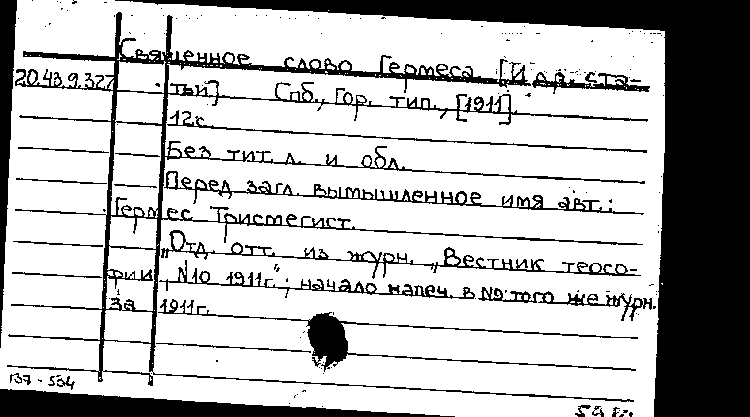 Священное слово Гермеса [И др. ста-
20.43.9.327
тьи]. Спб., Гор. тип., [1911].
12с.
Без тит. л. и обл.
Перед загл. вымышленное имя авт.:
Гермес Тристегист.
„Отд. отт. из журн. „Вестник теосо-
фии", №10 1911г."; начало напеч. в № того же журн.
за 1911г.
137-534